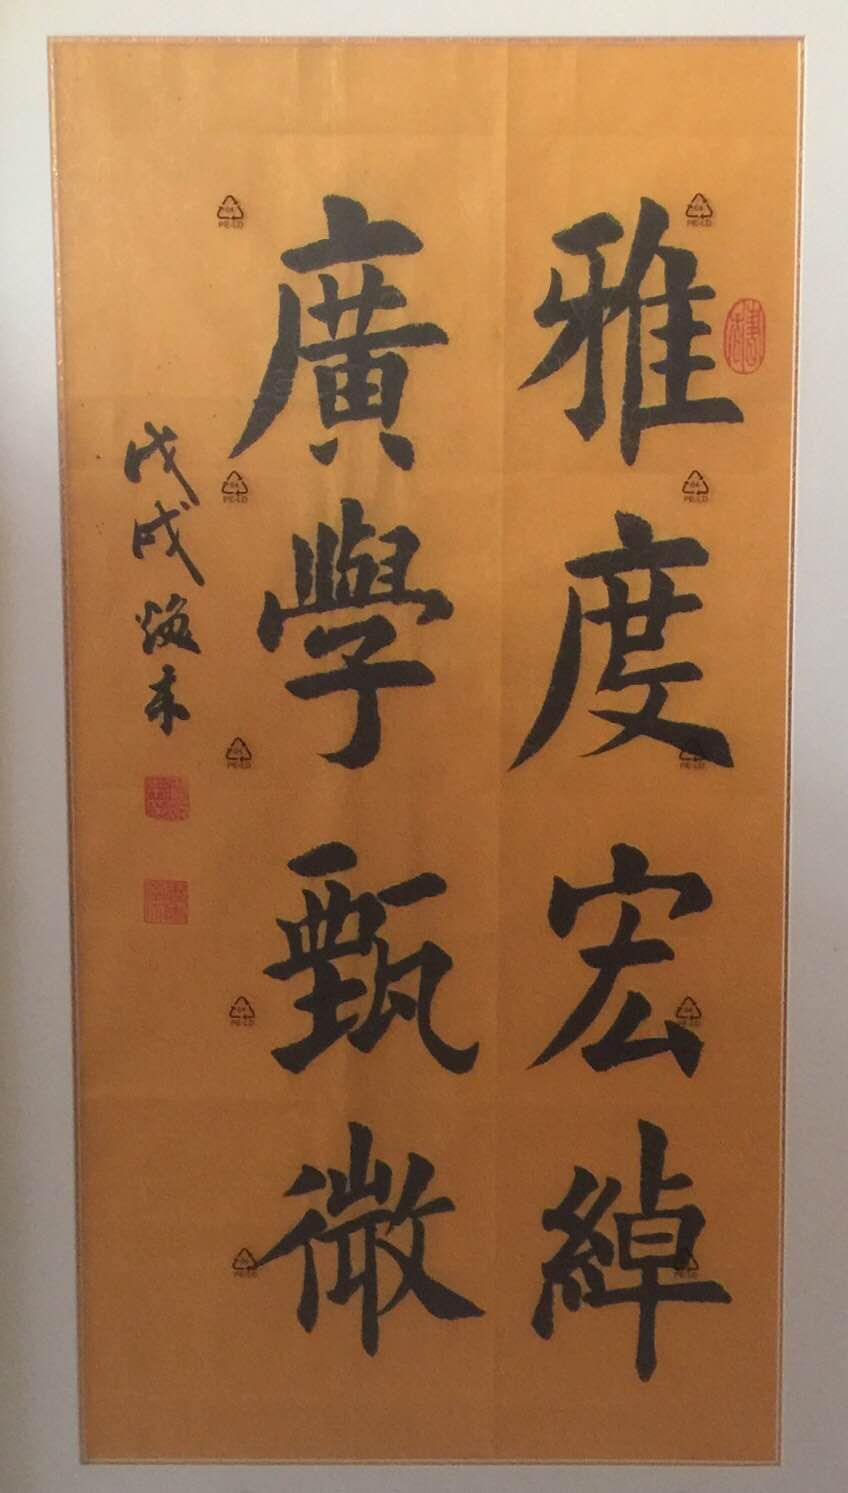 雅度宏綽
廣學甄微
戊戌
04
PE-LD
04
PE-LD
04
PE-LD
04
PE-LD
04
PE-LD
04
PE-LD
04
PE-LD
04
PE-LD
04
PE-LD
04
PE-LD